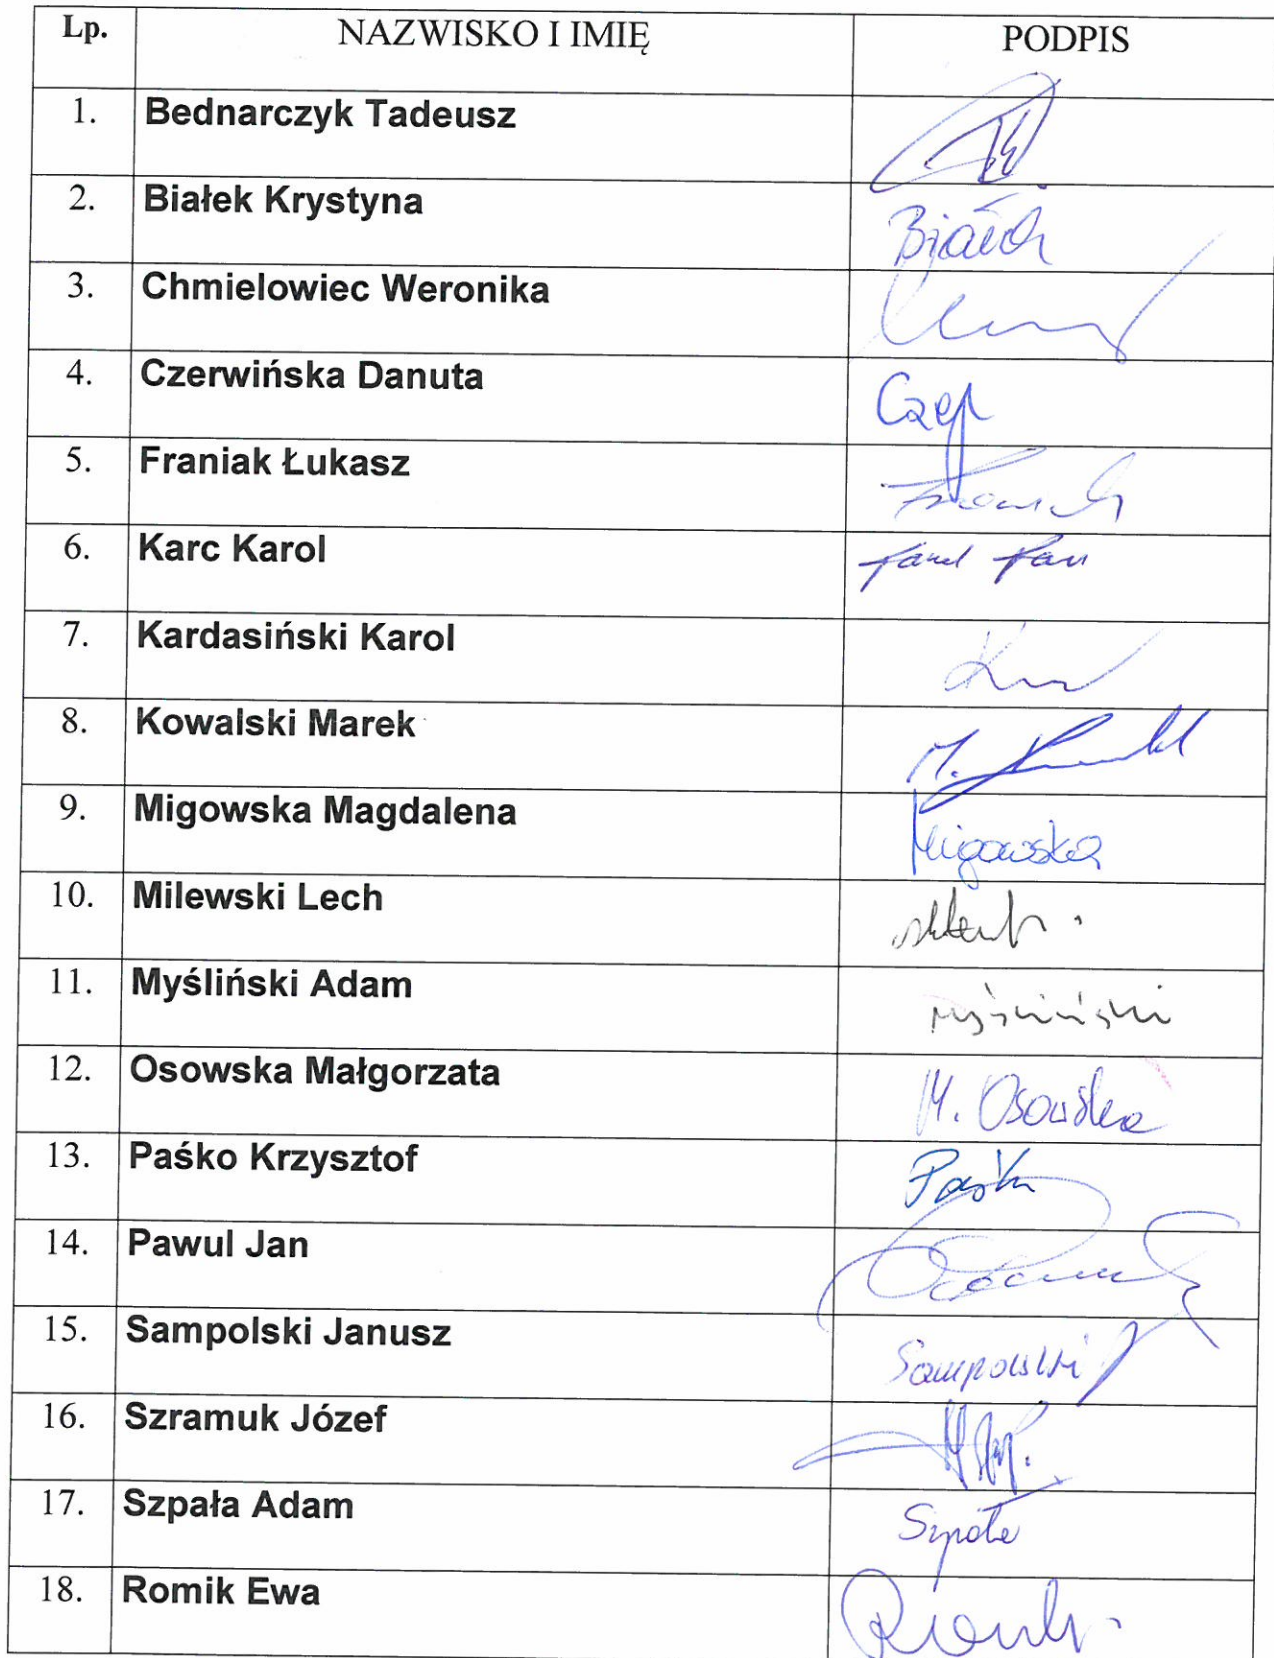 Lp. NAZWISKO I IMIĘ PODPIS
1. Bednarczyk Tadeusz
2. Białek Krystyna Białek
3. Chmielowiec Weronika
4. Czerwińska Danuta
5. Franiak Łukasz
6. Karc Karol
7. Kardasiński Karol
8. Kowalski Marek
9. Migowska Magdalena Migowska
10. Milewski Lech
11. Myśliński Adam Myśliński
12. Osowska Małgorzata M. Osowska
13. Paśko Krzysztof
14. Pawul Jan
15. Sampolski Janusz Sampolski
16. Szramuk Józef
17. Szpała Adam Szpała
18. Romik Ewa